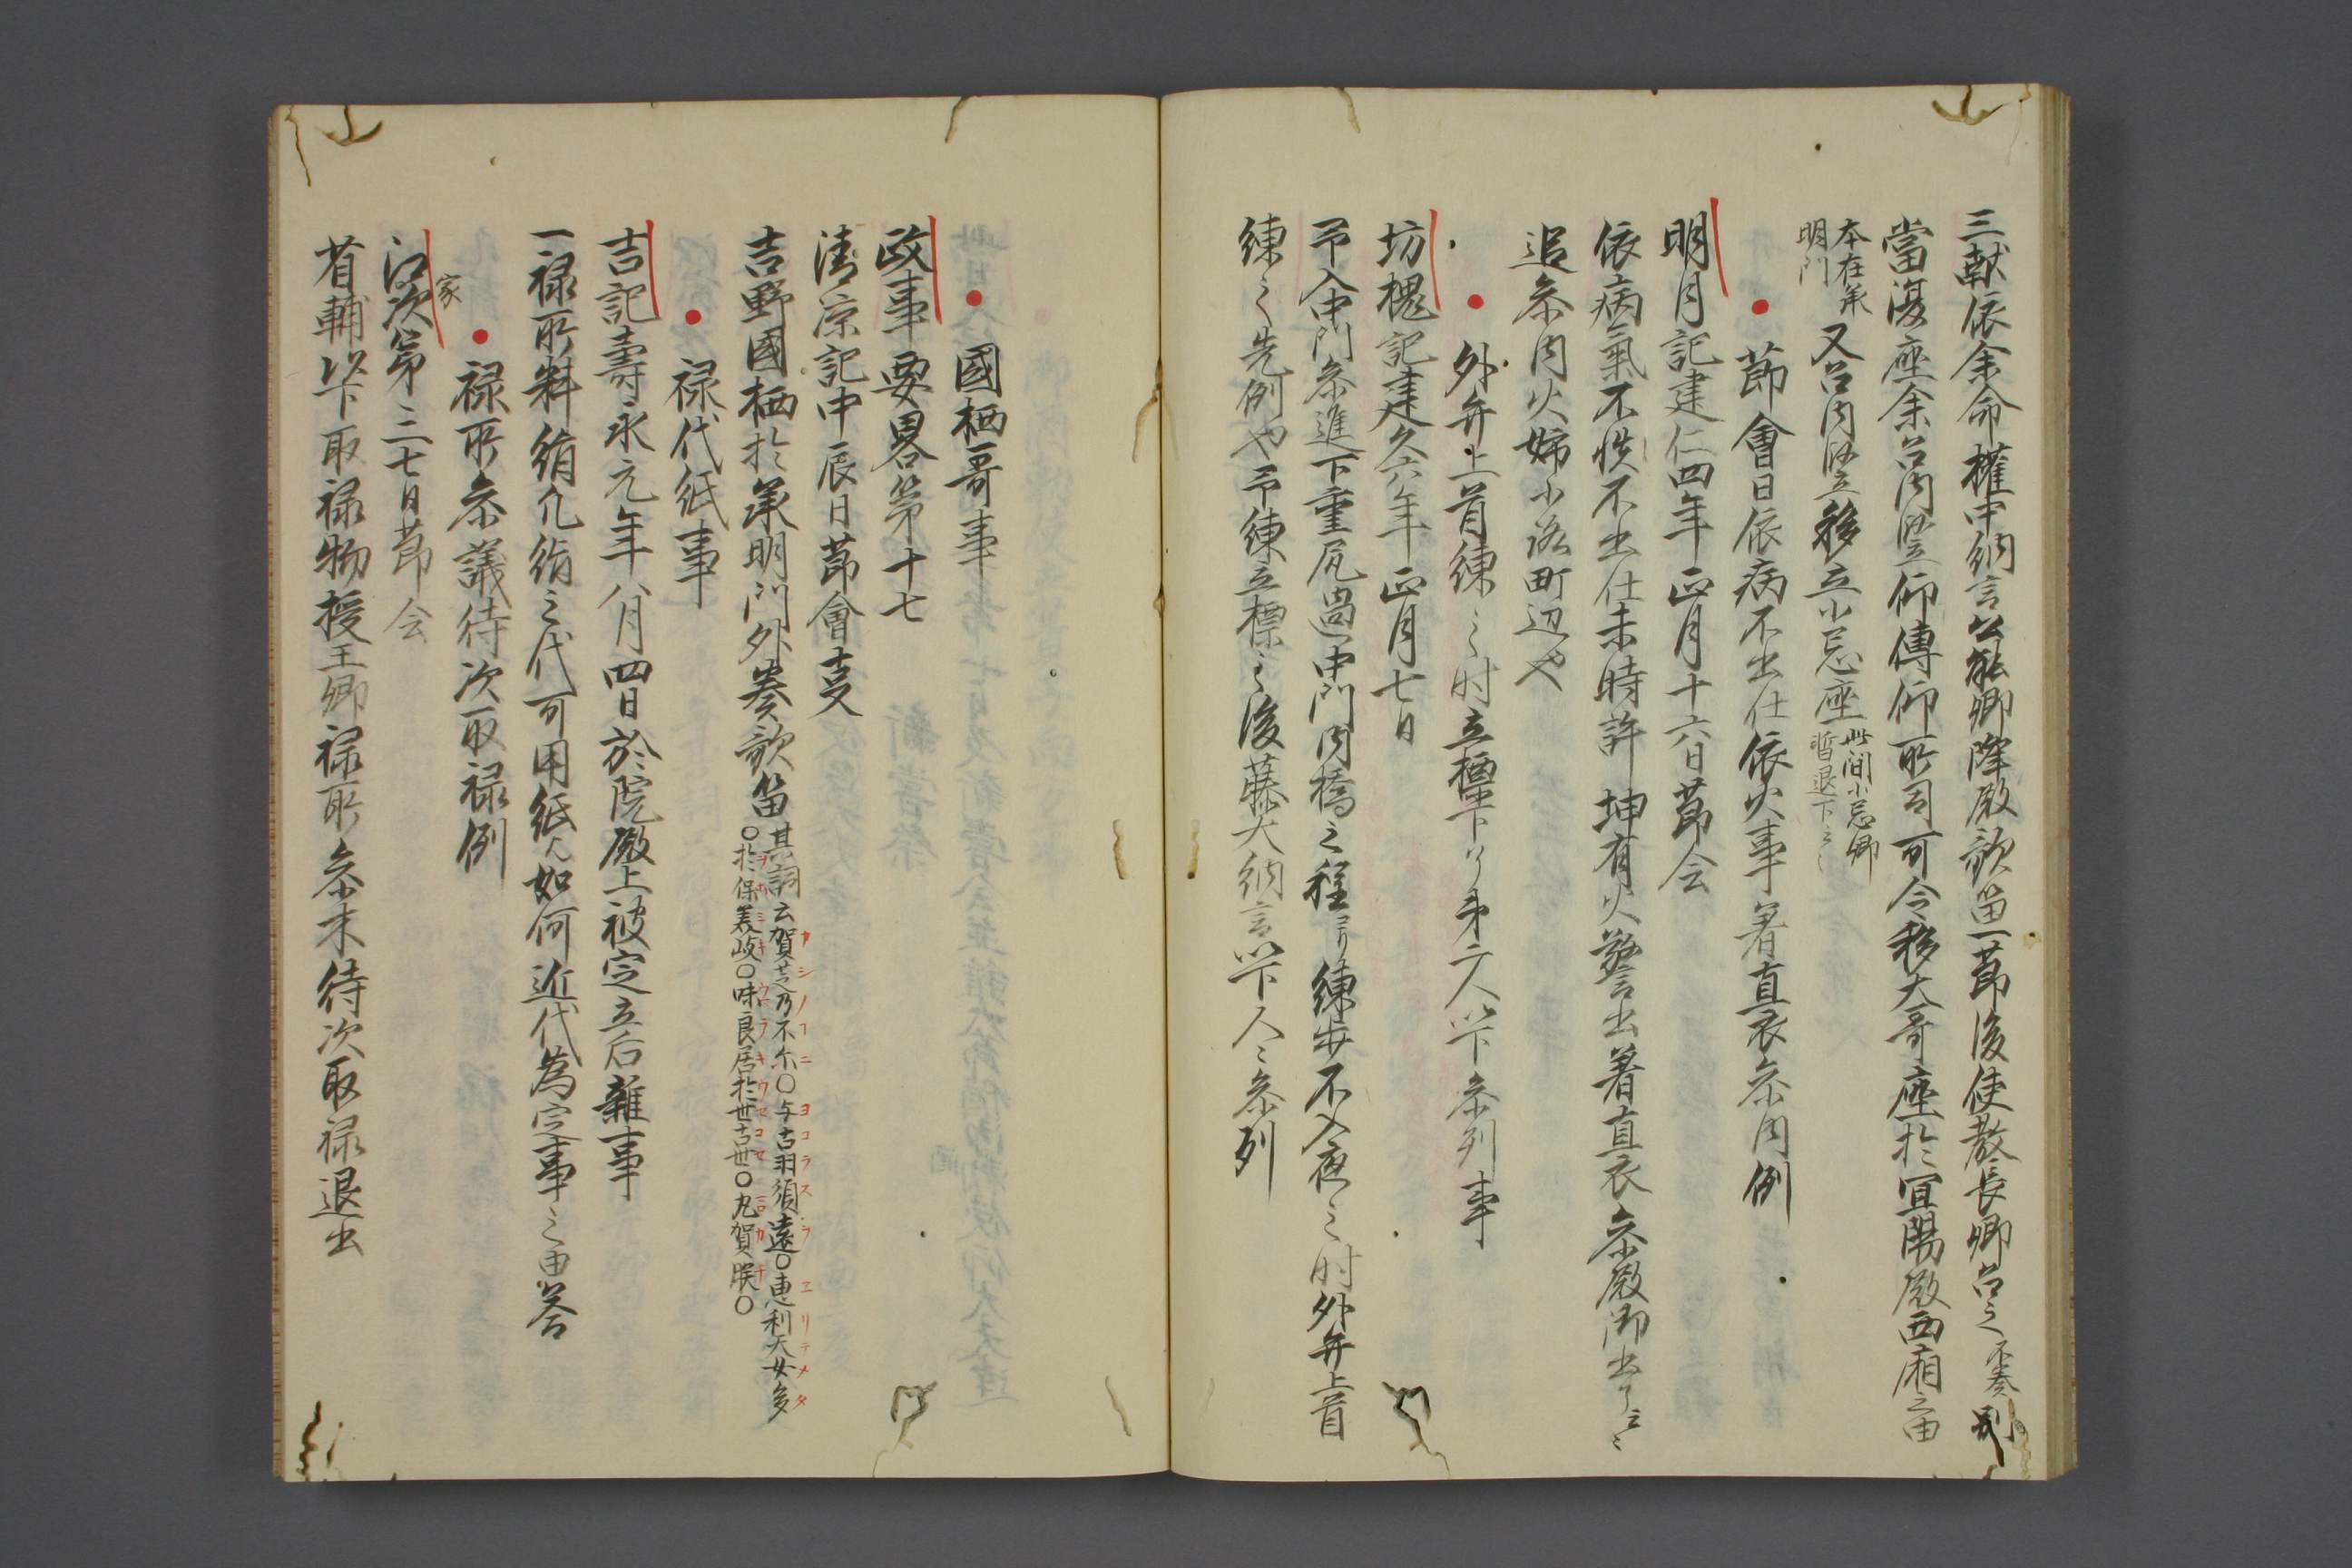 三献依余命権中納言公能卿降殿歌笛一節後使教長卿召之
當復座余召内竪仰傳仰所司可令移大哥座於宜陽殿西廂之由
本在承
明門
又召内竪移立小忌座
此間小忌卿
暫退下云々
節會日依病不出仕依火事著直衣参内例
明月記建仁四年正月十六日節会
依病氣不快不出仕未時許坤有火驚出著直衣参殿御出了云々
追参内火姉小路町辺也
外弁上首練之時立標下了第二人以下参列事
坊槐記建久六年正月七日
予入中門参進下重尻過中門内橋之程ヨリ練歩不入夜之時外弁上首
練之先例也予練立標之後藤大納言以下人々参列
國栖哥事
政事要畧第十七
清凉記中辰日節會支
吉野國栖於承明門外奏歌笛
其詞云賀芝乃不尓○与古羽須遠○恵利天女多
○於保美岐○味良居於世古世○丸賀朕○
禄代紙事
吉記壽永元年八月四日於院殿上被定立后雜事
一禄所料絹疋絹之代可用紙欤如何近代為定事之由答
禄所参議待次取禄例
江家次第二七日節会
省輔以下取禄物授王卿禄所参木待次取禄退出